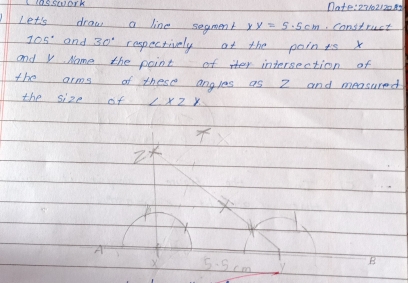 Classwork Date: 27/02/20
Let's draw a line segment XY = 5.5cm. Construct
105° and 30° respectively at the points X
and Y. Name the point of intersection of
the arms of these angles as Z and measured
the size of ∠XZY
Z
A X 5.5cm Y B